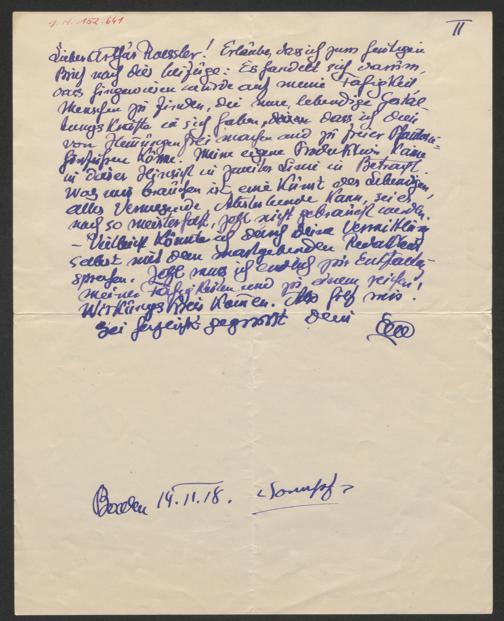 J. N. 152.641
II
Lieber Arthur Roessler! Erlaube, dass ich zum heutigen
Brief noch dies beifüge: Es handelt sich darum,
dass hingewiesen würde auf meine Fähigkeit
Menschen zu finden, die neue, lebendige Gestal-
tungskräfte in sich haben, dass ich diese
von Hemmungen frei machen und zu freier
hinführen könne. Meine eigene Produktion käme
in dieser Hinsicht in zweiter Linie in Betracht.
Was wir brauchen ist eine Kunst des Lebendigen,
alles Verneinende kann, sei es
noch so meisterhaft, jetzt nicht gebraucht werden.
– Vielleicht könnte ich durch deine Vermittlung
selbst mit dem massgebenden Redakteur
sprechen. Jetzt muss ich endlich zur Entfaltung
meiner Fähigkeiten und zu einem reichen
Wirkungskreis kommen. Also hilf mir!
Sei herzlichst gegrüsst Dein
Baden 14.II.18.